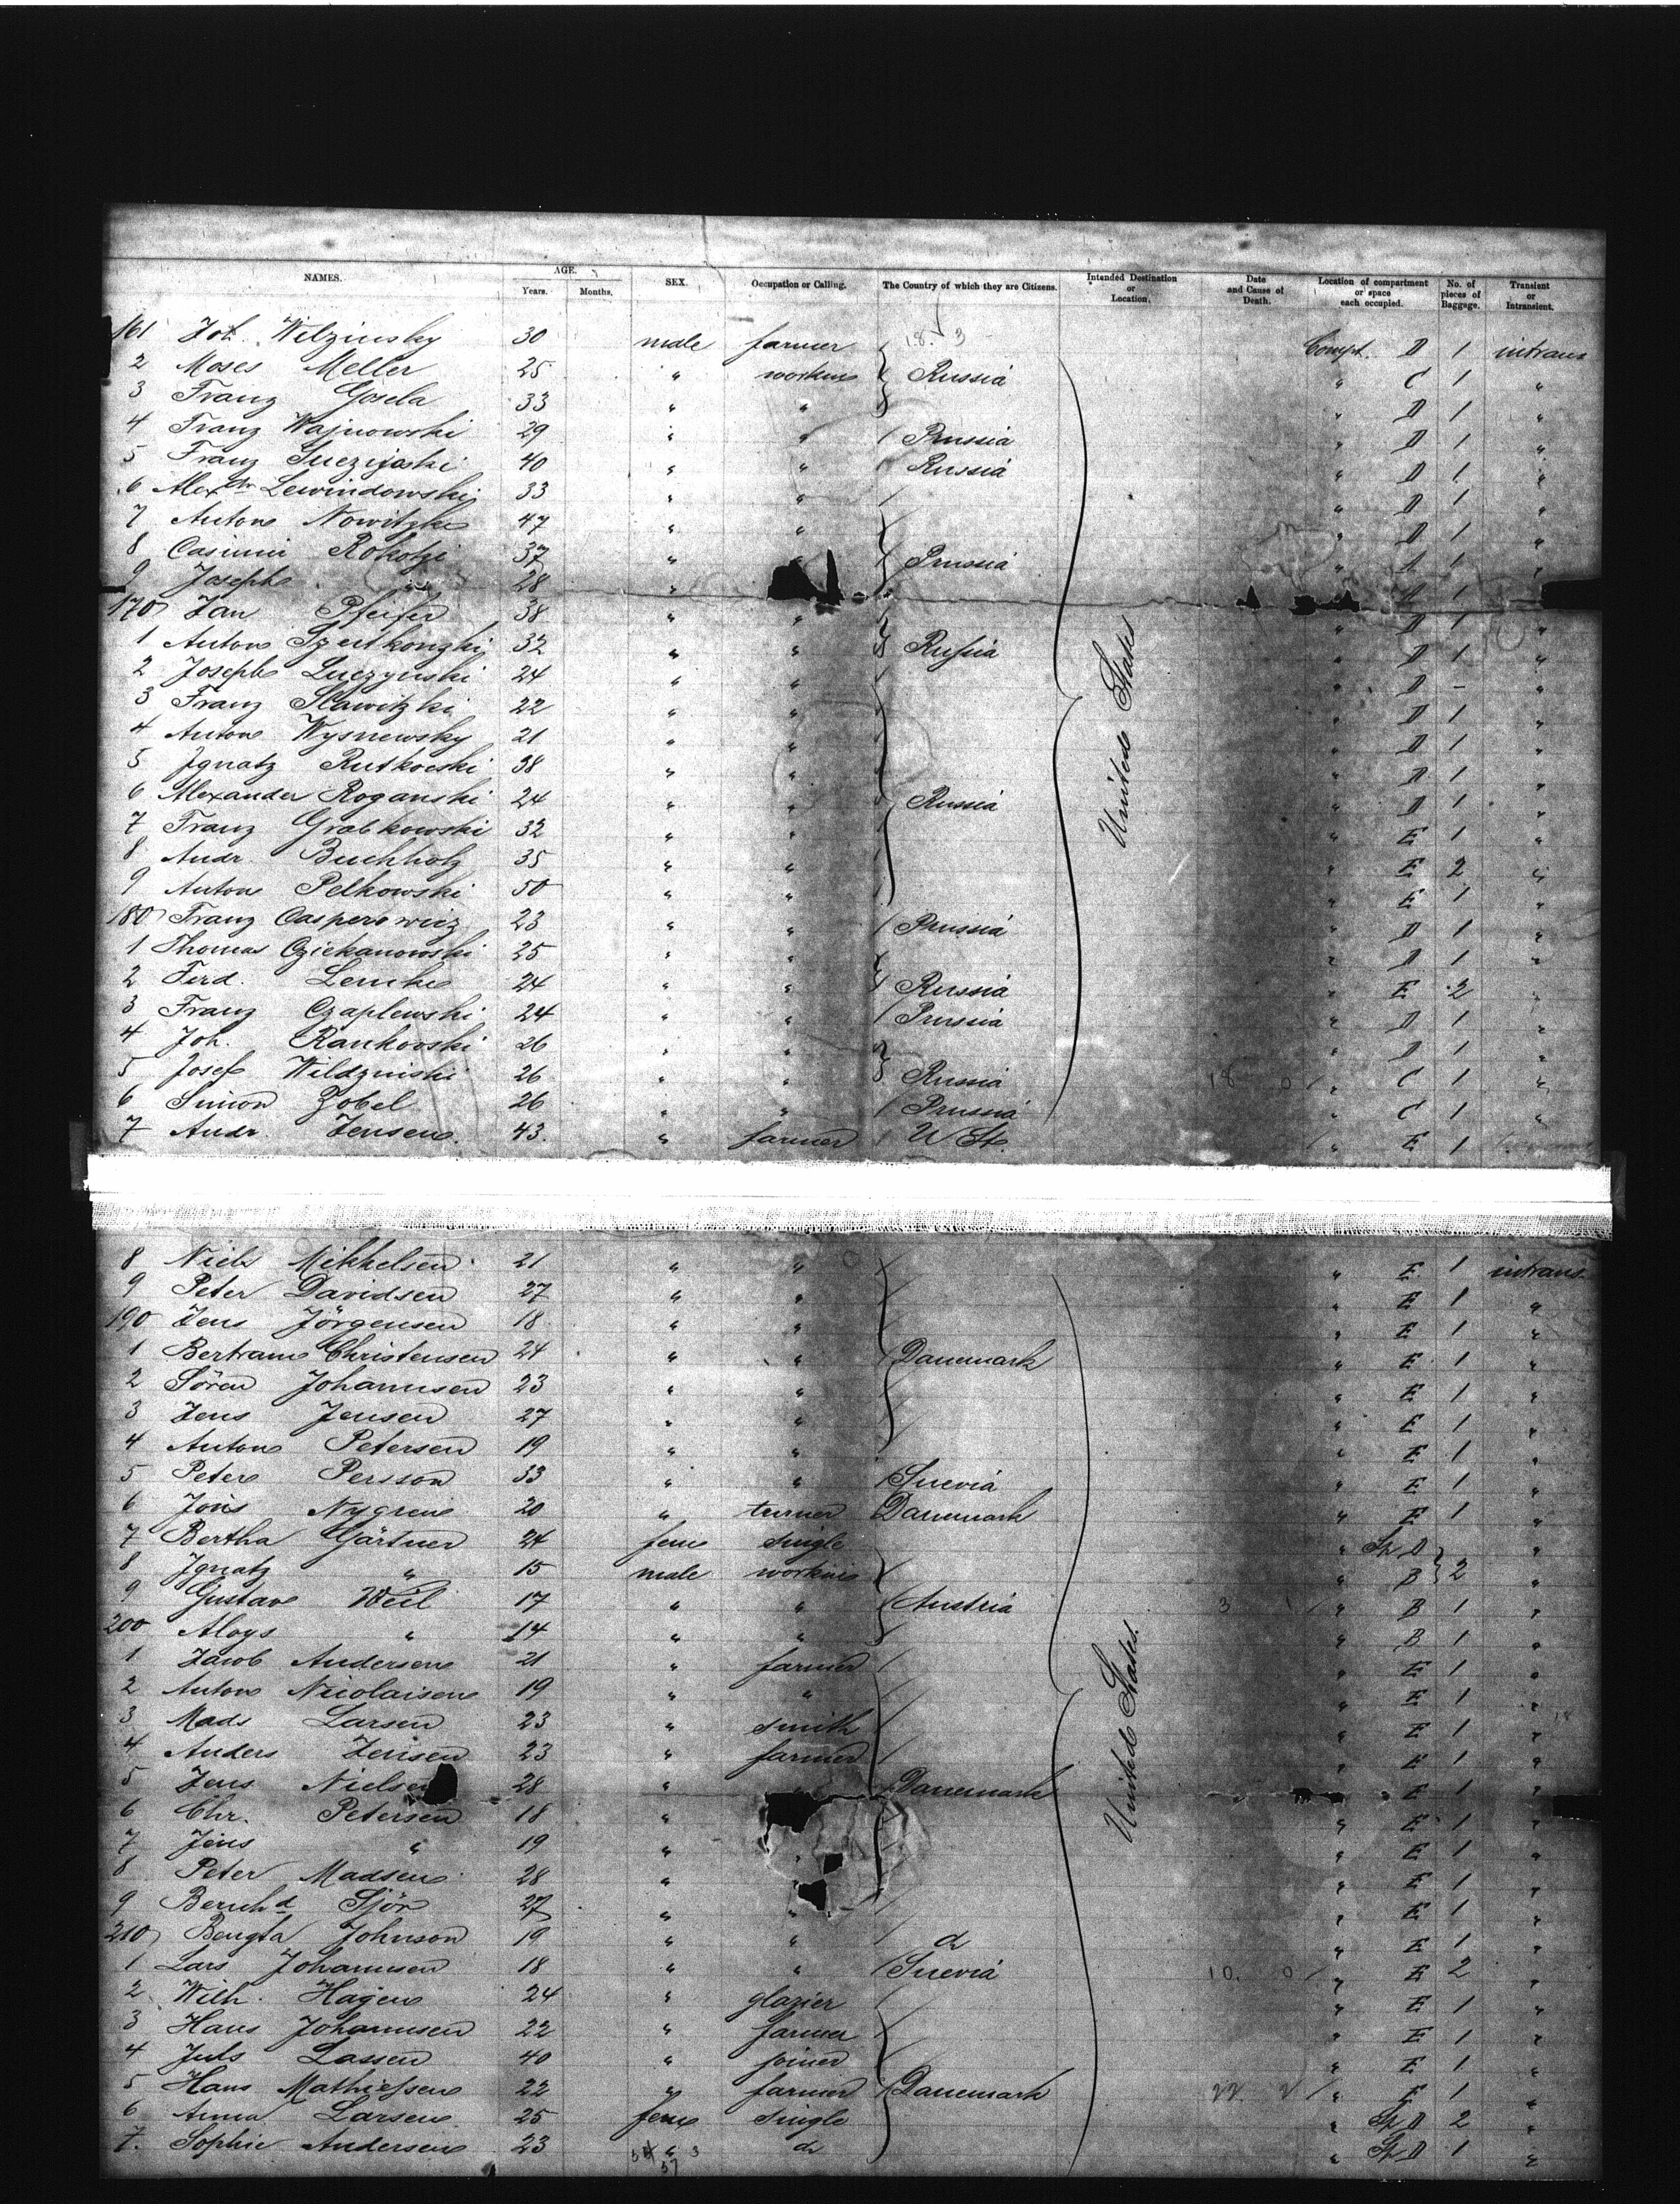 NAMES. AGE. Years. Months. SEX. Occupation or Calling. The Country of which they are Citizens. Intended Destination or Location. Date and Cause of Death. Location of compartment or space each occupied. No. of pieces of Baggage. Transient or Intransient.
161 Joh. Wilzinsky 30 male farmer Compt. D 1 intrans
2 Moses Meller 25 " Russia " C 1 "
3 Franz Gosela 33 " " " D 1 "
4 Franz Wajnowski 29 " " Prussia " D 1 "
5 Franz 40 " " Russia " D 1 "
6 Alexdr Lewindowski 33 " " " D 1 "
7 Anton Nowitzki 47 " " " D 1 "
8 Casimir 37 " Prussia " 1 "
9 Joseph " 28 "
170 Jan Pfeifer 38 " " " D 1 "
1 Anton 32 " " Russia " D 1 "
2 Joseph Luczynski 24 " " " D - "
3 Franz Slawitzki 22 " " " D 1 "
4 Anton Wysnewsky 21 " " " D 1 "
5 Ignatz Rutkoeski 38 " " " D 1 "
6 Alexander Roganski 24 " " Russia " D 1 "
7 Franz Grabkowski 32 " " " E 1 "
8 Andr. Buchholz 35 " " " E 2 "
9 Anton Pelkowski 50 " " " E 1 "
180 Franz Casperowicz 23 " " Prussia " D 1 "
1 Thomas Cziekanowski 25 " " " D 1 "
2 Ferd. Lemke 24 " " Russia " E 2 "
3 Franz Czaplewski 24 " " Prussia " D 1 "
4 Joh. Rankowski 26 " " " D 1 "
5 Josef Wildzinski 26 " " Russia " C 1 "
6 Simon Zobel 26 " " Prussia " C 1 "
7 Andr. Jensen 43 " farmer U St. " E 1
United States
8 Niels Mikkelsen 21 " " " E 1 intrans
9 Peter Davidsen 27 " " " E 1 "
190 Jens Jörgensen 18 " " " E 1 "
1 Bertram Christensen 24 " " Danemark " E 1 "
2 Sören Johannsen 23 " " " E 1 "
3 Jens Jensen 27 " " " E 1 "
4 Anton Petersen 19 " " " E 1 "
5 Peter Persson 33 " " Suevia " E 1 "
6 Jöns Nygren 20 " turner Danemark " E 1 "
7 Bertha Gärtner 24 fem single " Sp D "
8 Ignatz " 15 male " B 2 "
9 Gustav Weil 17 " " Austria " B 1 "
200 Aloys " 14 " " " B 1 "
1 Jacob Andersen 21 " farmer " E 1 "
2 Anton Nicolaisen 19 " " " E 1 "
3 Mads Larsen 23 " smith " E 1 "
4 Anders Jensen 23 " farmer " E 1 "
5 Jens Nielsen 28 " Danemark " E 1 "
6 Chr. Petersen 18 " " E 1 "
7 Jens " 19 " " " E 1 "
8 Peter Madsen 28 " " E 1 "
9 Bernhd Sjör 27 " " " E 1 "
210 Bengta Johnson 19 " " d " E 1 "
1 Lars Johannsen 18 " " Suevia " E 2 "
2 Wilh. Hagen 24 " glazier " E 1 "
3 Hans Johannsen 22 " farmer " E 1 "
4 Juls Lassen 40 " joiner " E 1 "
5 Hans Mathiessen 22 " farmer Danemark " E 1 "
6 Anna Larsen 25 fem single " Sp D 2 "
7. Sophie Andersen 23 " d " Sp D 1 "
United States.